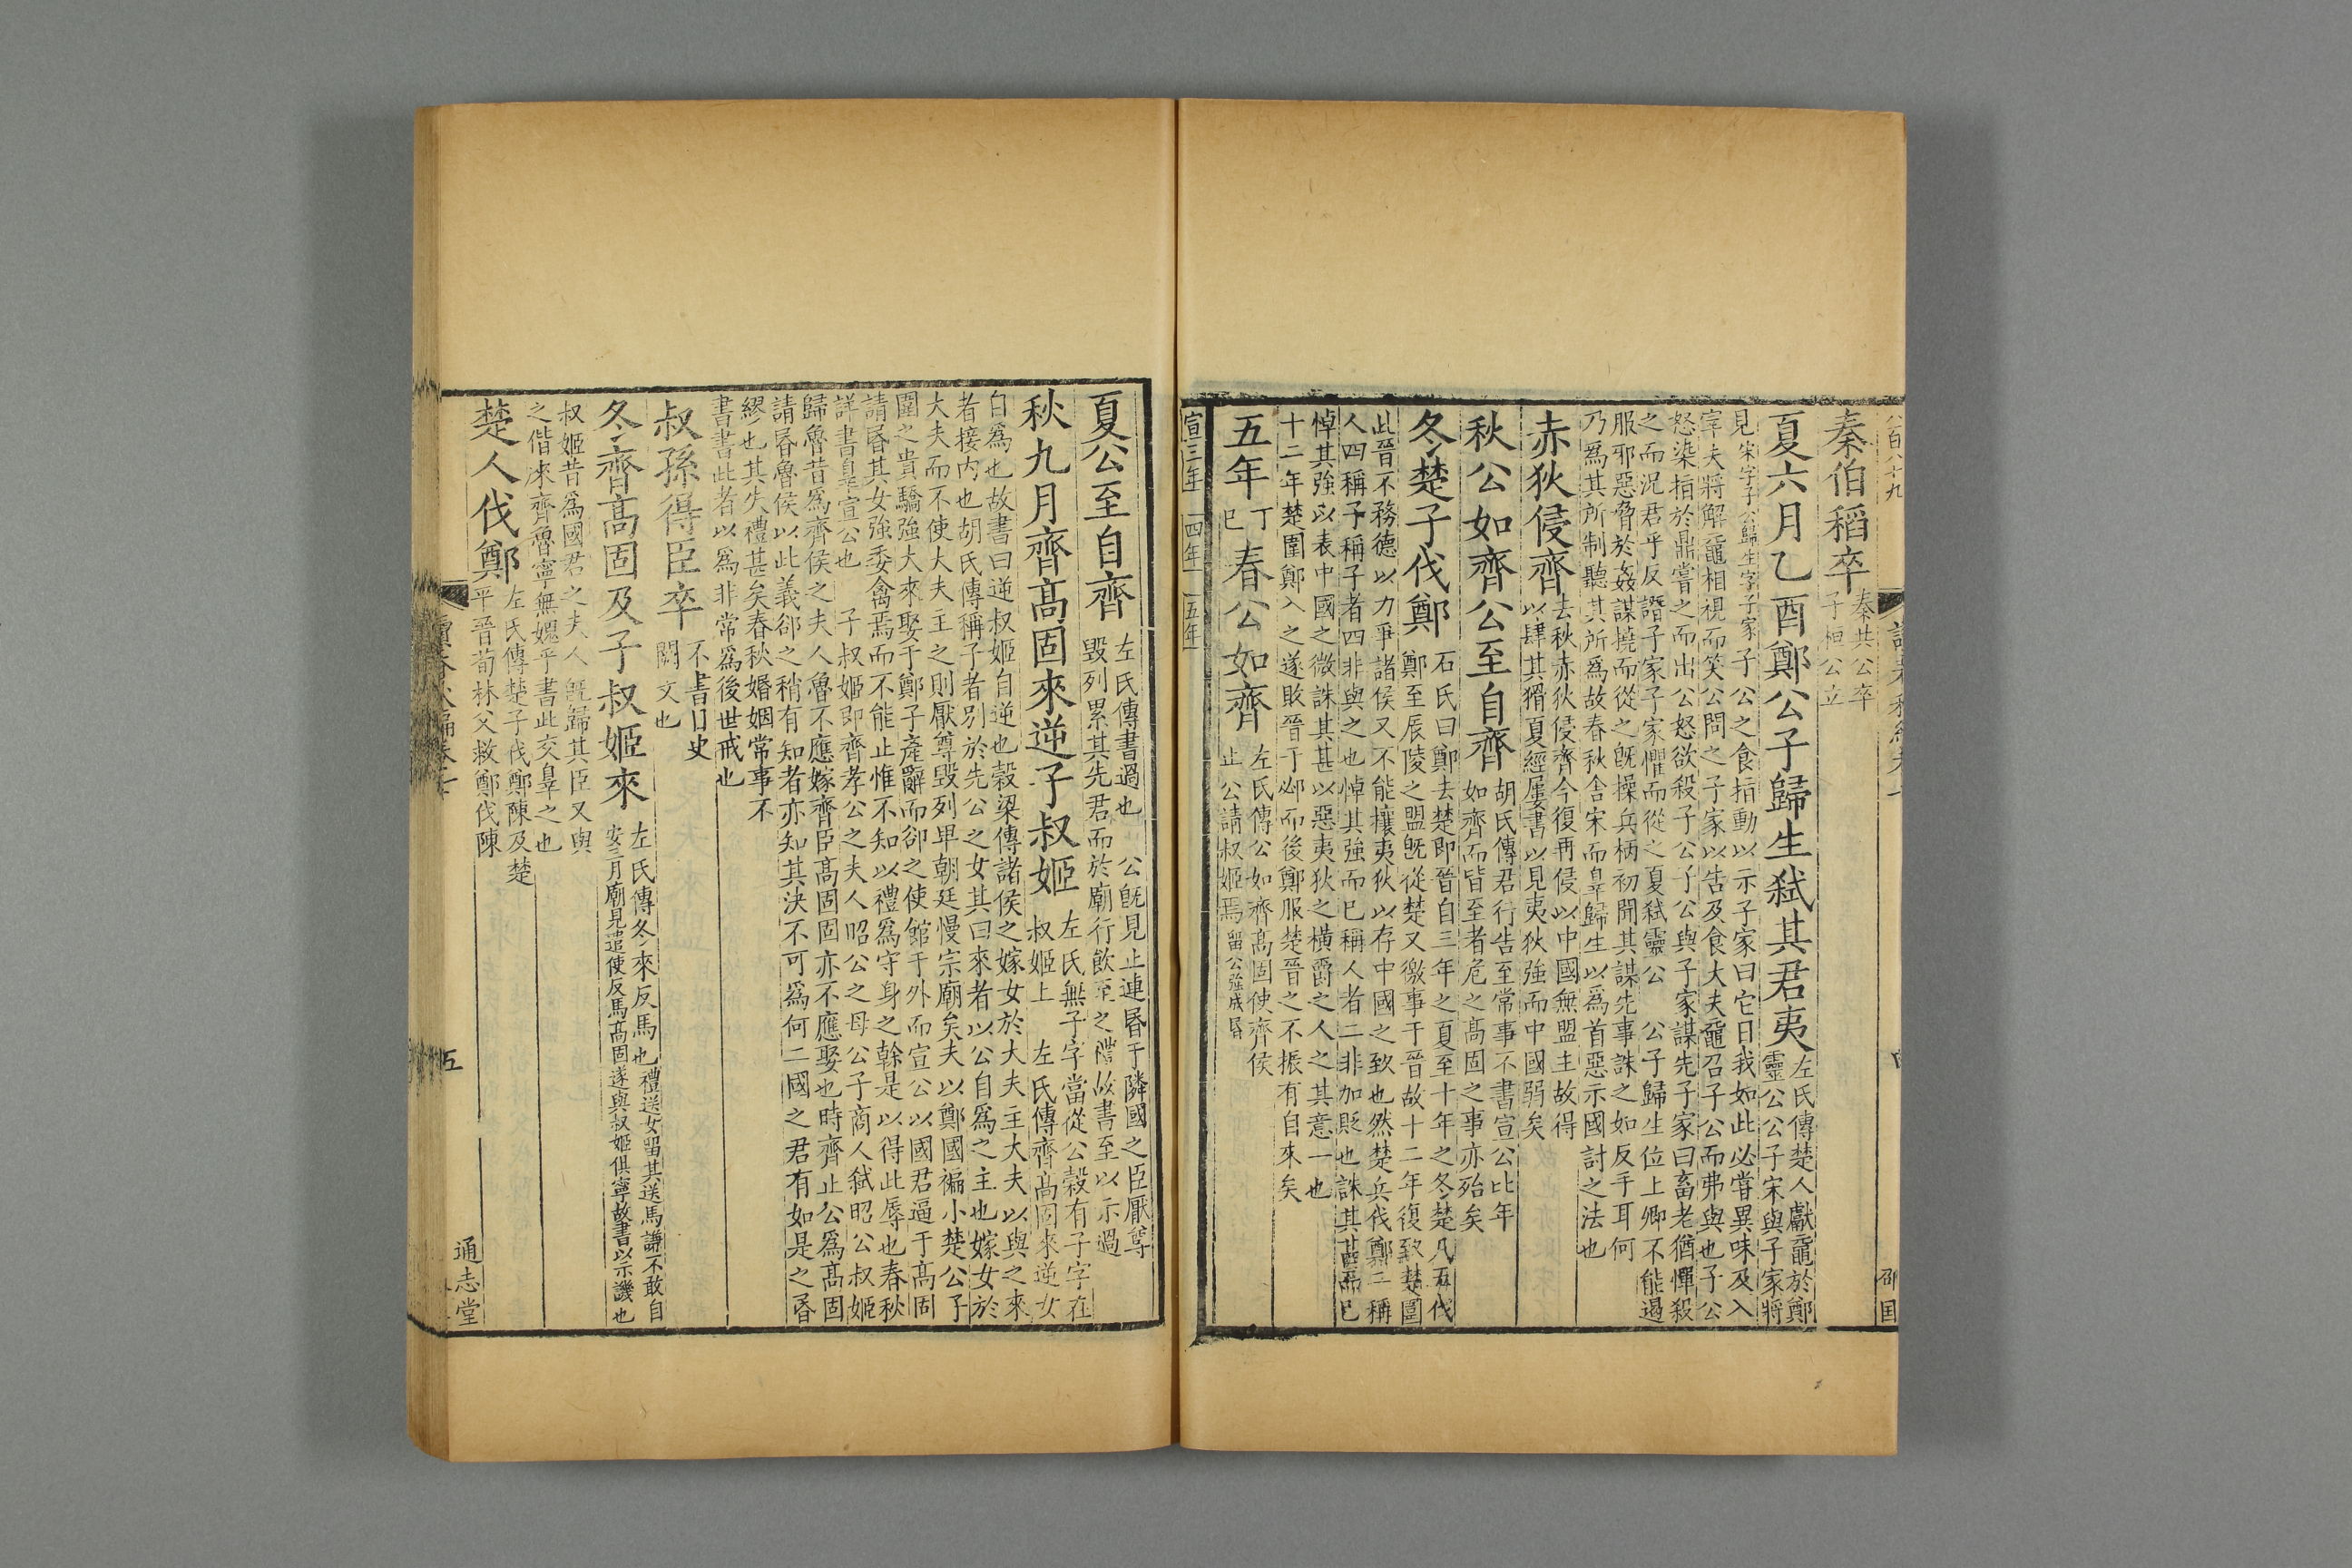 秦伯稻卒
秦共公卒
子桓公立
夏六月乙酉鄭公子歸生弑其君夷
左氏傳楚人獻黿於鄭
靈公公子宋與子家將
見宋字子公歸生字子家子公之食指動以示子家曰它日我如此必嘗異味及入
宰夫將解黿相視而笑公問之子家以告及食大夫黿召子公而弗與也子公
怒染指於鼎嘗之而出公怒欲殺子公子公與子家謀先子家曰畜老猶憚殺
之而況君乎反譖子家子家懼而從之夏弑靈公 公子歸生位上卿不能遏
服邪惡脅於姦謀撓而從之旣操兵柄初聞其謀先事誅之如反手耳何
乃爲其所制聽其所爲故春秋舍宋而辠歸生以爲首惡示國討之法也
赤狄侵齊
去秋赤狄侵齊今復再侵以中國無盟主故得
以肆其猾夏經屢書以見夷狄強而中國弱矣
秋公如齊公至自齊
胡氏傳君行告至常事不書宣公比年
如齊而皆至者危之髙固之事亦殆矣
冬楚子伐鄭
石氏曰鄭去楚即晉自三年之夏至十年之冬楚凡五伐
鄭至辰陵之盟旣從楚又徼事于晉故十二年復致楚圍
此晉不務德以力爭諸侯又不能攘夷狄以存中國之致也然楚兵伐鄭二稱
人四稱子稱子者四非與之也悼其強而已稱人者二非加貶也誅其甚而已
悼其強以表中國之微誅其甚以惡夷狄之橫爵之人之其意一也
十二年楚圍鄭入之遂敗晉于邲而後鄭服楚晉之不振有自來矣
五年
丁
巳
春公如齊
左氏傳公如齊髙固使齊侯
止公請叔姬焉留公強成昬
宣三年 四年 五年
夏公至自齊
左氏傳書過也 公旣見止連昬于隣國之臣厭尊
毀列累其先君而於廟行飲至之禮故書至以示過
秋九月齊髙固來逆子叔姬
左氏無子字當從公榖有子字在
叔姬上 左氏傳齊髙固來逆女
自爲也故書曰逆叔姬自逆也榖梁傳諸侯之嫁女於大夫主大夫以與之來
者接内也胡氏傳稱子者别於先公之女其曰來者以公自爲之主也嫁女於
大夫而不使大夫主之則厭尊毀列卑朝廷慢宗廟矣夫以鄭國褊小楚公子
圍之貴驕強大來娶于鄭子產辭而郤之使館于外而宣公以國君逼于髙固
請昬其女強委禽焉而不能止惟不知以禮爲守身之幹是以得此辱也春秋
詳書辠宣公也 子叔姬即齊孝公之夫人昭公之母公子商人弑昭公叔姬
歸魯昔爲齊侯之夫人魯不應嫁齊臣髙固固亦不應娶也時齊止公爲髙固
請昬魯侯以此義郤之稍有知者亦知其決不可爲何二國之君有如是之昬
繆也其失禮甚矣春秋婚姻常事不
書書此者以爲非常爲後世戒也
叔孫得臣卒
不書日史
闕文也
冬齊髙固及子叔姬來
左氏傳冬來反馬也禮送女留其送馬謙不敢自
安三月廟見遣使反馬髙固遂與叔姬俱寧故書以示譏也
叔姬昔爲國君之夫人旣歸其臣又與
之偕來齊魯寧無媿乎書此交辠之也
楚人伐鄭
左氏傳楚子伐鄭陳及楚
平晉荀林父救鄭伐陳
五
通志堂